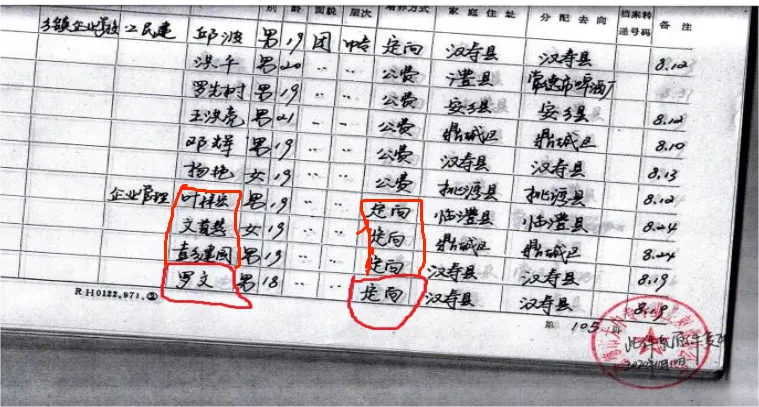 别 龄 面貌 层次 培养方式 家庭住址 分配去向 档案转递号码 备注
乡镇企业学校 工民建 邱波 男 19 团 中专 定向 汉寿县 汉寿县 8.12
洪平 男 20 〃 〃 公费 澧县 常德市啤酒厂
罗先树 男 19 〃 〃 公费 安乡县 安乡县 8.12
王洪亮 男 21 〃 〃 公费 鼎城区 鼎城区 8.10
邓辉 男 19 〃 〃 公费 汉寿县 汉寿县 8.13
杨艳 女 19 〃 〃 公费 桃源县 桃源县 8.12
企业管理 男 19 〃 〃 定向 临澧县 临澧县 8.24
女 19 〃 〃 定向 鼎城区 鼎城区 8.24
建国 男 19 〃 〃 定向 汉寿县 汉寿县 8.19
罗文 男 18 〃 〃 定向 汉寿县 汉寿县 8.19
RH0122.971.③
第 105 页